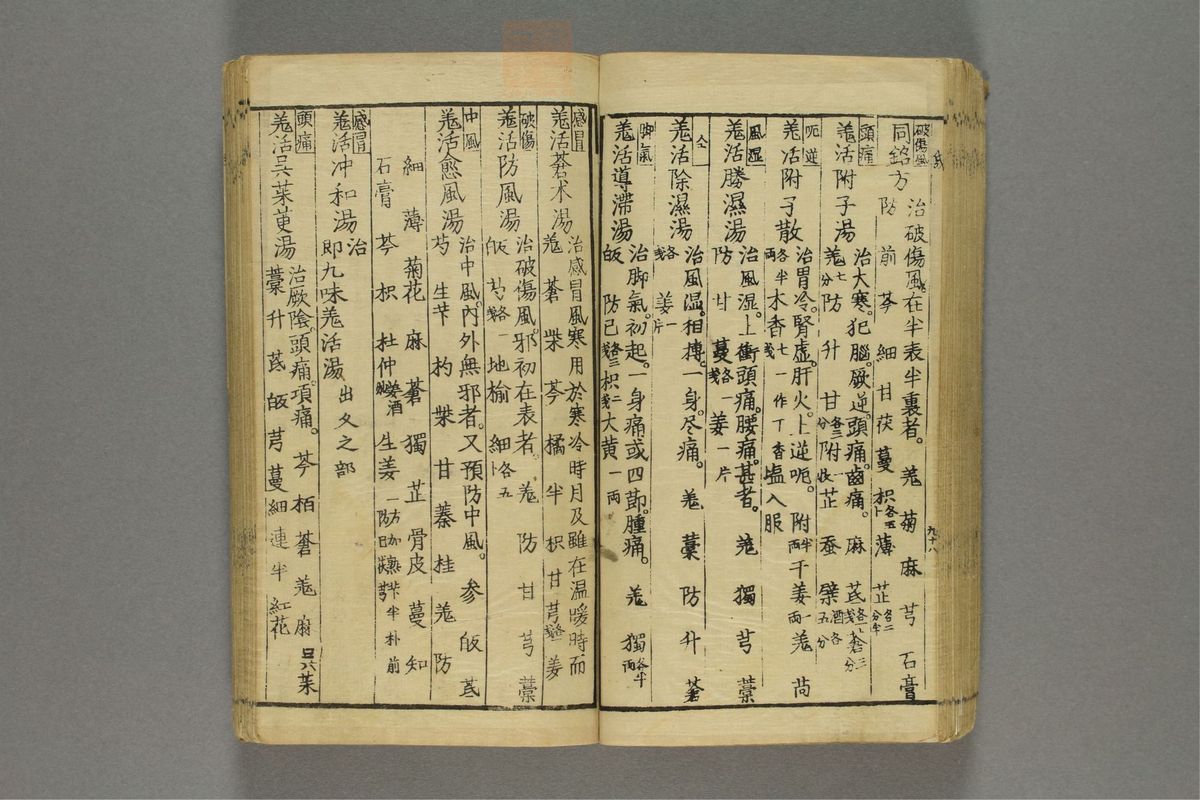 破傷風
同銘方 治破傷風在半表半裏者。羗 菊 麻 芎 石膏
防 前 芩 細 甘 茯 蔓 枳各五卜 薄 芷各二分半
九十八
頭痛
羗活附子湯 治大寒。犯腦。厥逆。頭痛。齒痛。麻 芪各一戔 蒼三分
羗七分 防 升 甘各三分 附一 芷 蚕 蘗酒各五分
呃逆
羗活附子散 治胃冷。腎虛。肝火。上逆呃。附半兩 干姜一兩 羗 茴
各半兩 木香七戔 一作丁香 塩入服
風湿
羗活勝濕湯 治風湿。上衝頭痛。腰痛。甚者。羗 獨 芎 藁
防 甘 蔓各一戔 姜一片
仝
羗活除濕湯 治風湿。相搏。一身。尽痛。羗 藁 防 升 蒼
各戔 姜一片
脚氣
羗活導滯湯 治脚氣。初起。一身痛或四節。腫痛。羗 獨各半兩
皈 防已各三戔 枳二戔 大黄一兩
感冒
羗活蒼术湯 治感冒風寒用於寒冷時月及雖在温暖時而
羗 蒼 柴 芩 橘 半 枳 甘 芎各戔 姜
破傷
羗活防風湯 治破傷風。邪初在表者。羗 防 甘 芎 藁
皈 芍各一戔 地榆 細各五卜
中風
羗活愈風湯 治中風。內外無邪者。又預防中風。参 皈 芪
芍 生芐 杓 柴 甘 蓁 桂 羗 防
細 薄 菊花 麻 蒼 獨 芷 骨皮 蔓 知
石膏 芩 枳 杜仲姜酒 生姜 一方加熟芐半朴前
防
感冒
羗活冲和湯 治
即九味羗活湯 出久之部
頭痛
羗活呉茱萸湯 治厥陰。頭痛。項痛。芩 栢 蒼 羗 麻 呉茱
藁 升 芪 皈 芎 蔓 細 連 半 紅花